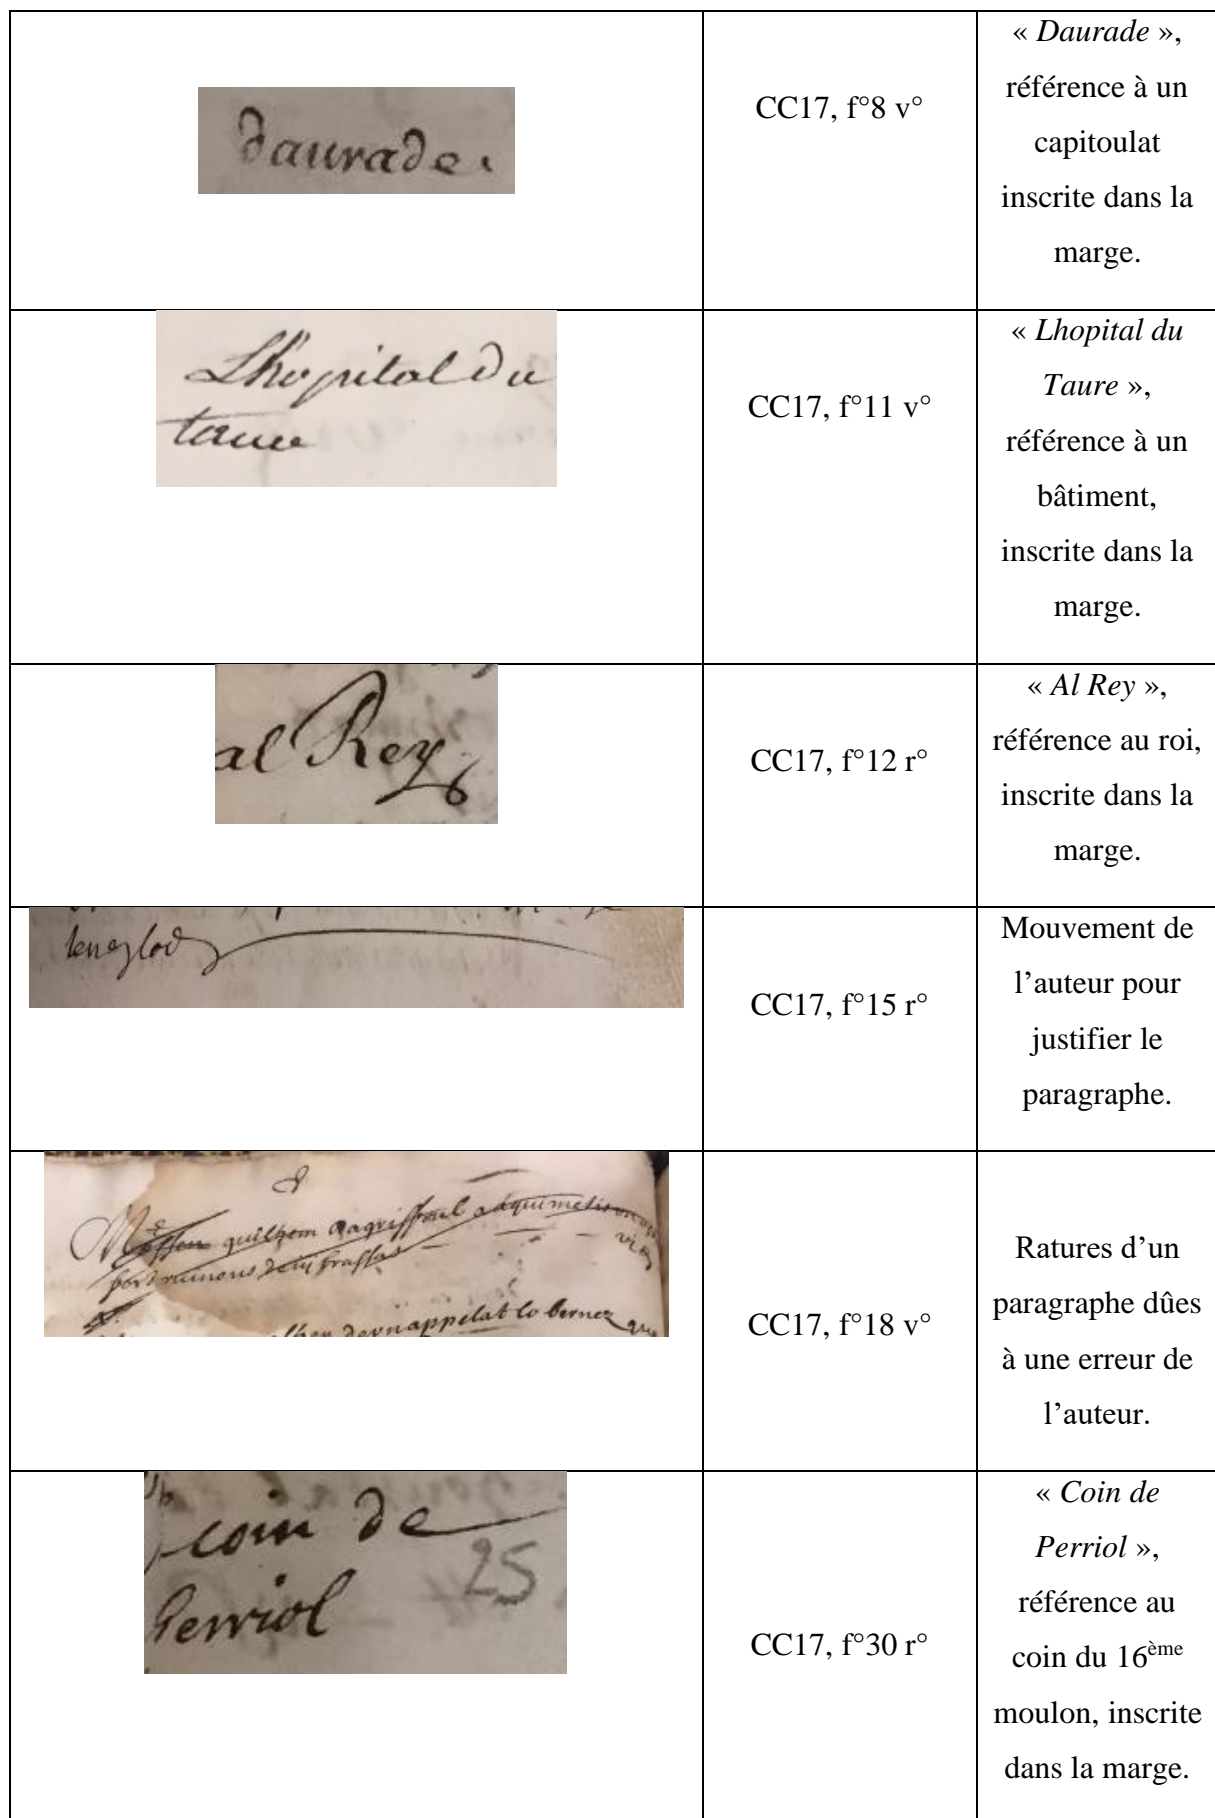 daurade.
CC17, f°8 v°
« Daurade »,
référence à un
capitoulat
inscrite dans la
marge.
Lhopital du
taure
CC17, f°11 v°
« Lhopital du
Taure »,
référence à un
bâtiment,
inscrite dans la
marge.
al Rey
CC17, f°12 r°
« Al Rey »,
référence au roi,
inscrite dans la
marge.
CC17, f°15 r°
Mouvement de
l’auteur pour
justifier le
paragraphe.
guilhem
appelat lo
CC17, f°18 v°
Ratures d’un
paragraphe dûes
à une erreur de
l’auteur.
coin de
Perriol 25
CC17, f°30 r°
« Coin de
Perriol »,
référence au
coin du 16ème
moulon, inscrite
dans la marge.